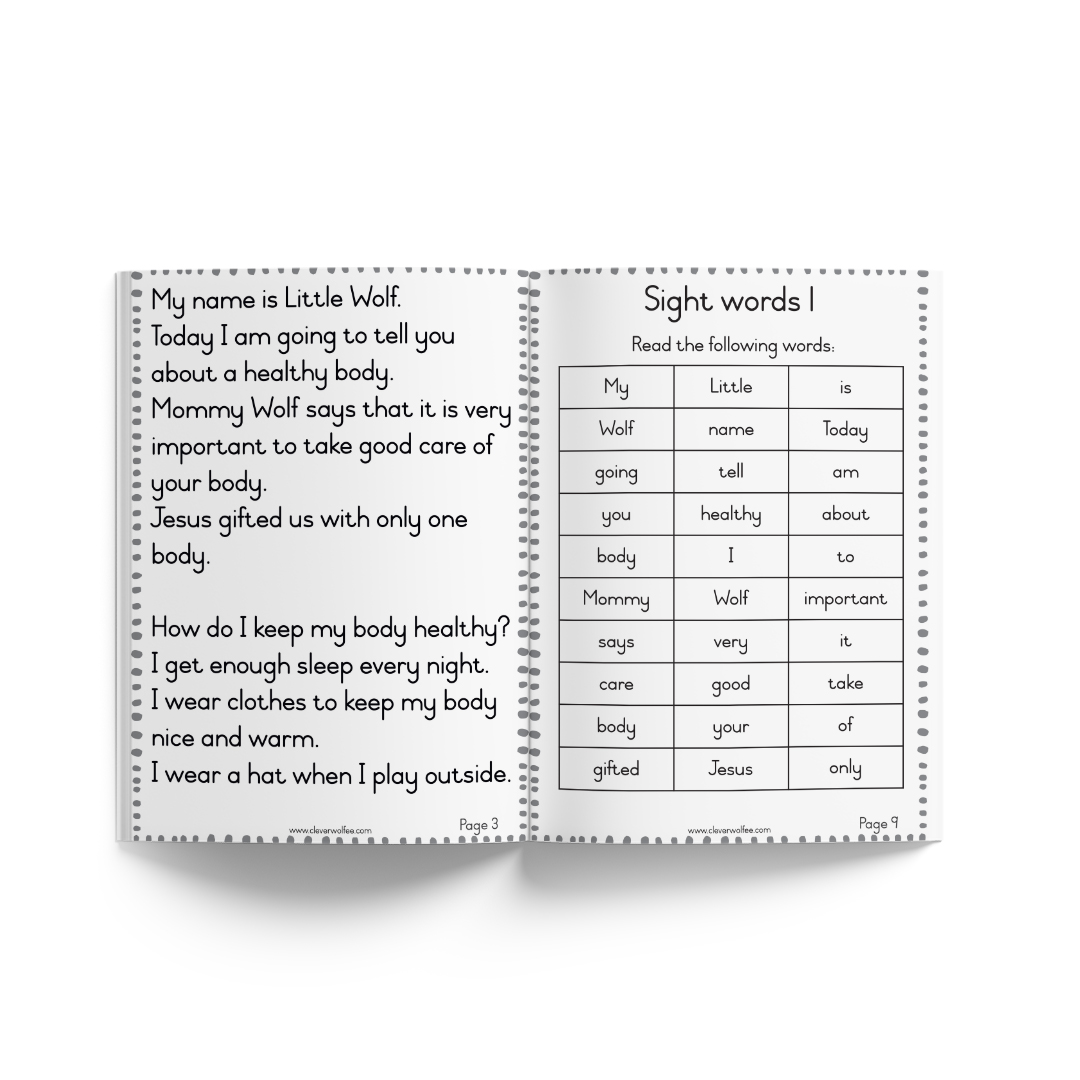 My name is Little Wolf.
Today I am going to tell you
about a healthy body.
Mommy Wolf says that it is very
important to take good care of
your body.
Jesus gifted us with only one
body.
How do I keep my body healthy?
I get enough sleep every night.
I wear clothes to keep my body
nice and warm.
I wear a hat when I play outside.
www.cleverwolfee.com
Page 3
Sight words 1
Read the following words:
My Little is
Wolf name Today
going tell am
you healthy about
body I to
Mommy Wolf important
says very it
care good take
body your of
gifted Jesus only
www.cleverwolfee.com
Page 9